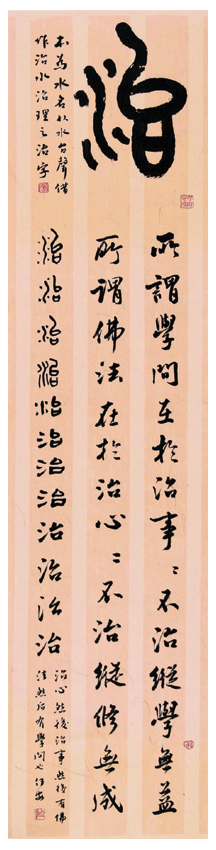 治
本為水名从水台聲借
作治水治理之治字
所謂學問在於治事〻不治縱學無益
所謂佛法在於治心〻不治縱修無成
治治治治治治治治治治治治
治心然後治事然後有佛
法然后有學問也